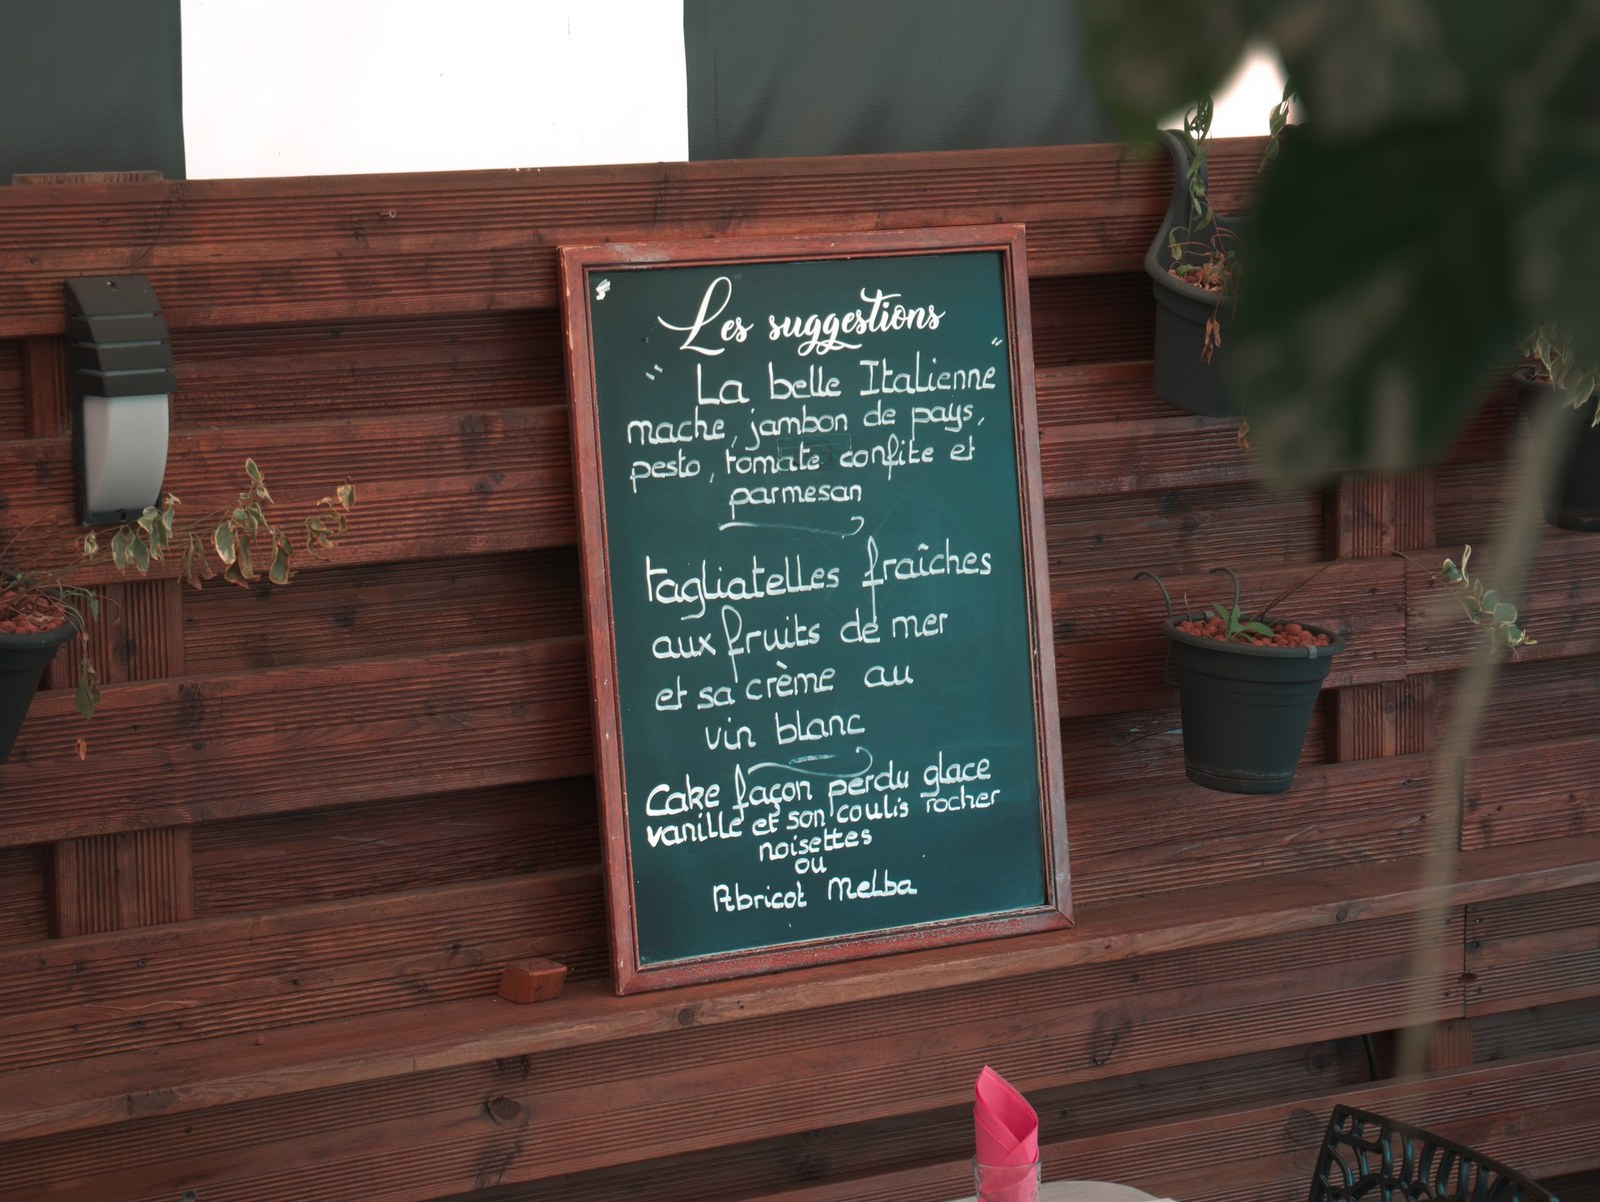 Les suggestions
" La belle Italienne "
mache, jambon de pays,
pesto, tomate confite et
parmesan
tagliatelles fraîches
aux fruits de mer
et sa crème au
vin blanc
Cake façon perdu glace
vanille et son coulis rocher
noisettes
ou
Abricot Melba